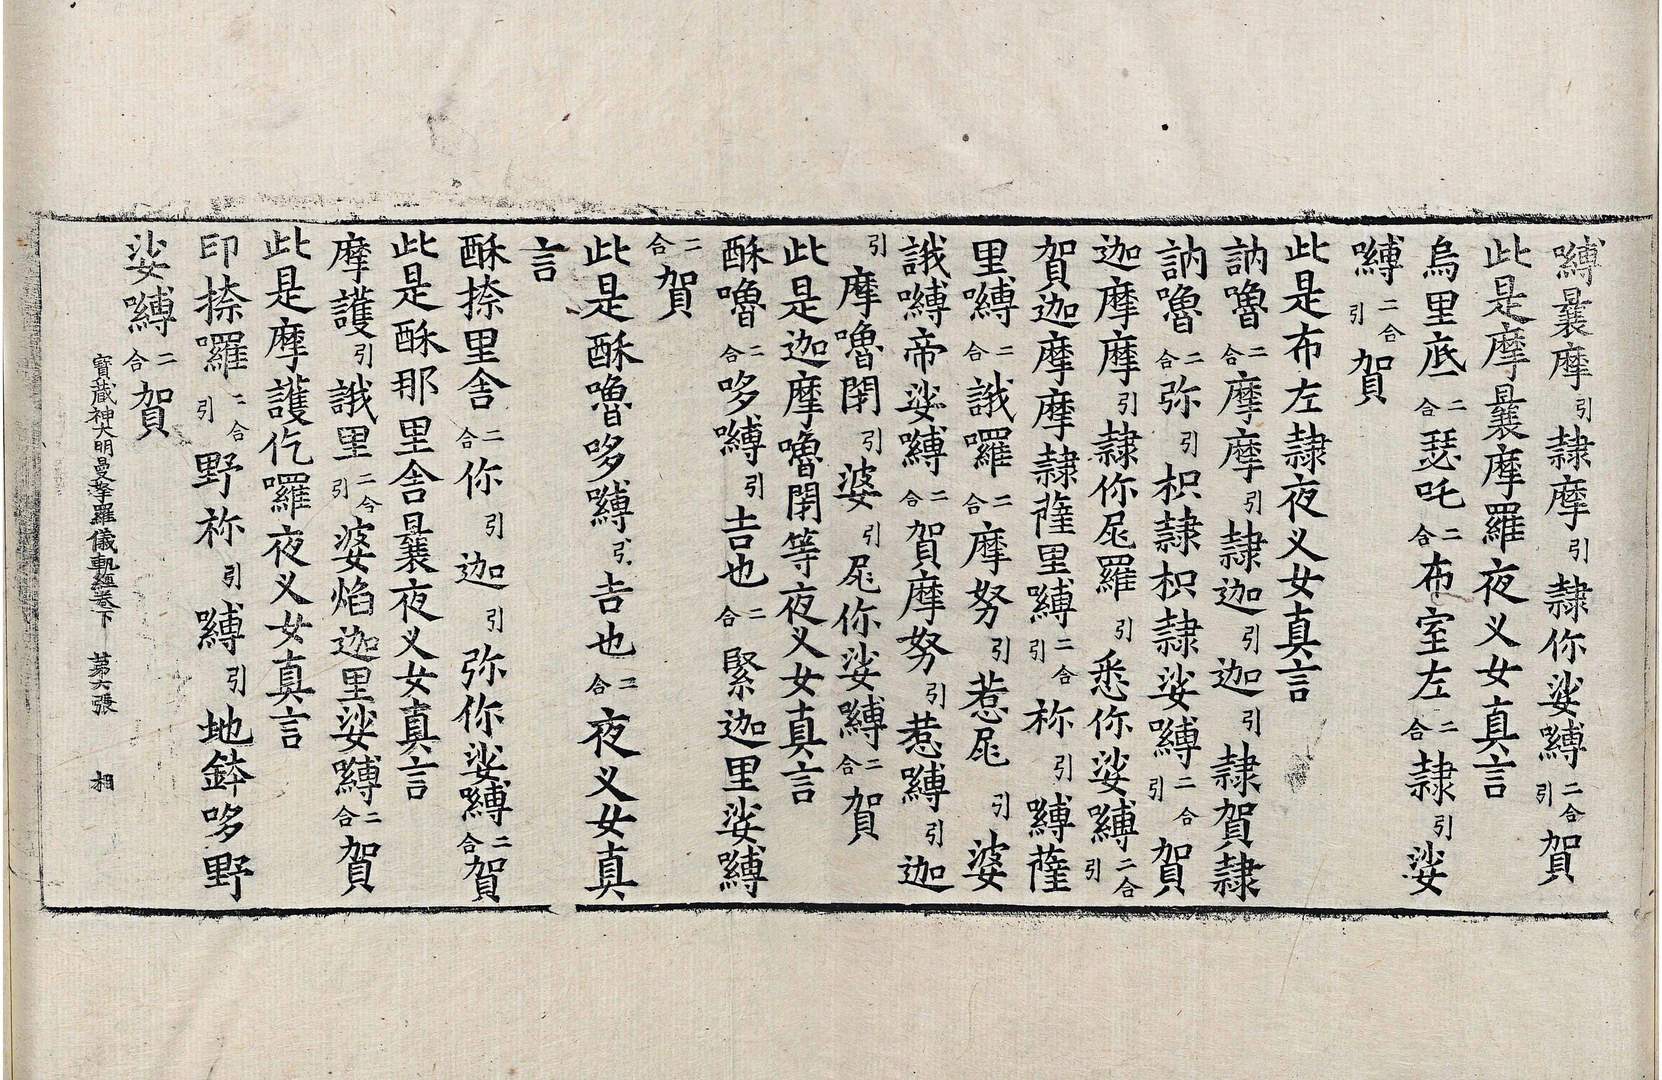 嚩曩摩引隷摩引隷你娑嚩二合引賀
此是摩曩摩羅夜义女真言
烏里底二合瑟吒二合布室左二合隷引娑
嚩二合引賀
此是布左隷夜义女真言
訥嚕二合摩摩引隷迦引迦引隷賀隷
訥嚕二合弥引枳隷枳隷娑嚩二合引賀
迦摩摩引隷你屁羅引悉你娑嚩二合引
賀迦摩摩隷薩里嚩二合引祢引嚩薩
里嚩二合誐囉二合摩努引惹屁引婆
誐嚩帝娑嚩二合賀摩努引惹嚩引迦
引摩嚕閉引婆引屁你娑嚩二合賀
此是迦摩嚕閉等夜义女真言
酥嚕二合哆嚩引吉也二合緊迦里娑嚩
二合賀
此是酥嚕哆嚩引吉也二合夜义女真
言
酥捺里舍二合你引迦引弥你娑嚩二合賀
此是酥那里舍曩夜义女真言
摩護引誐里二合引婆焰迦里娑嚩二合賀
此是摩護仡囉夜义女真言
印捺囉二合引野祢引嚩引地鉢哆野
娑嚩二合賀
寶藏神大明曼拏羅儀軌經卷下 第六張 相